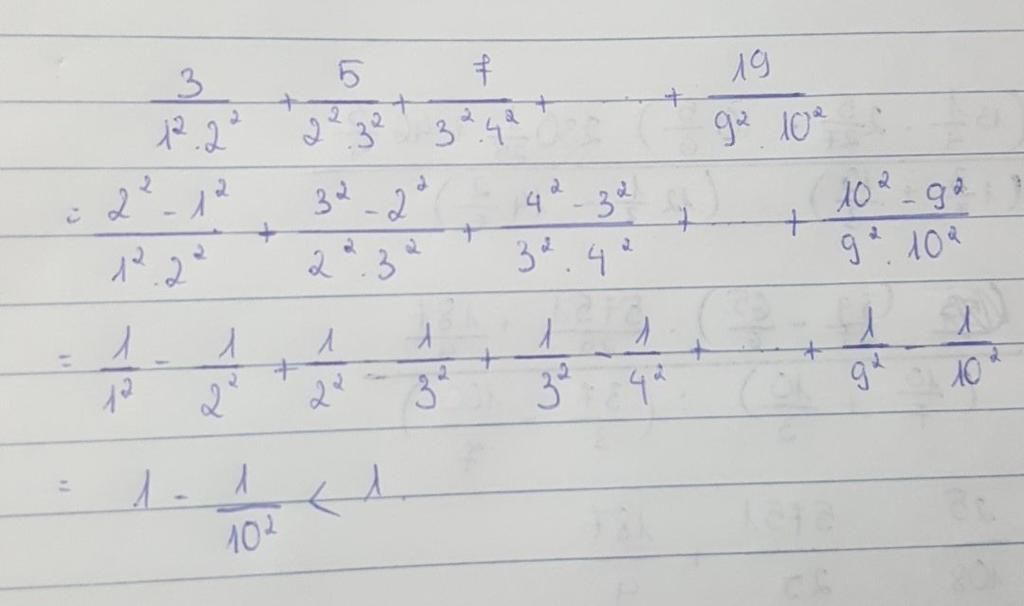 3/(1².2²) + 5/(2².3²) + 7/(3².4²) + ..... + 19/(9².10²)
= (2² - 1²)/(1².2²) + (3² - 2²)/(2².3²) + (4² - 3²)/(3².4²) + ..... + (10² - 9²)/(9².10²)
= 1/1² - 1/2² + 1/2² - 1/3² + 1/3² - 1/4² + ..... + 1/9² - 1/10²
= 1 - 1/10² < 1.